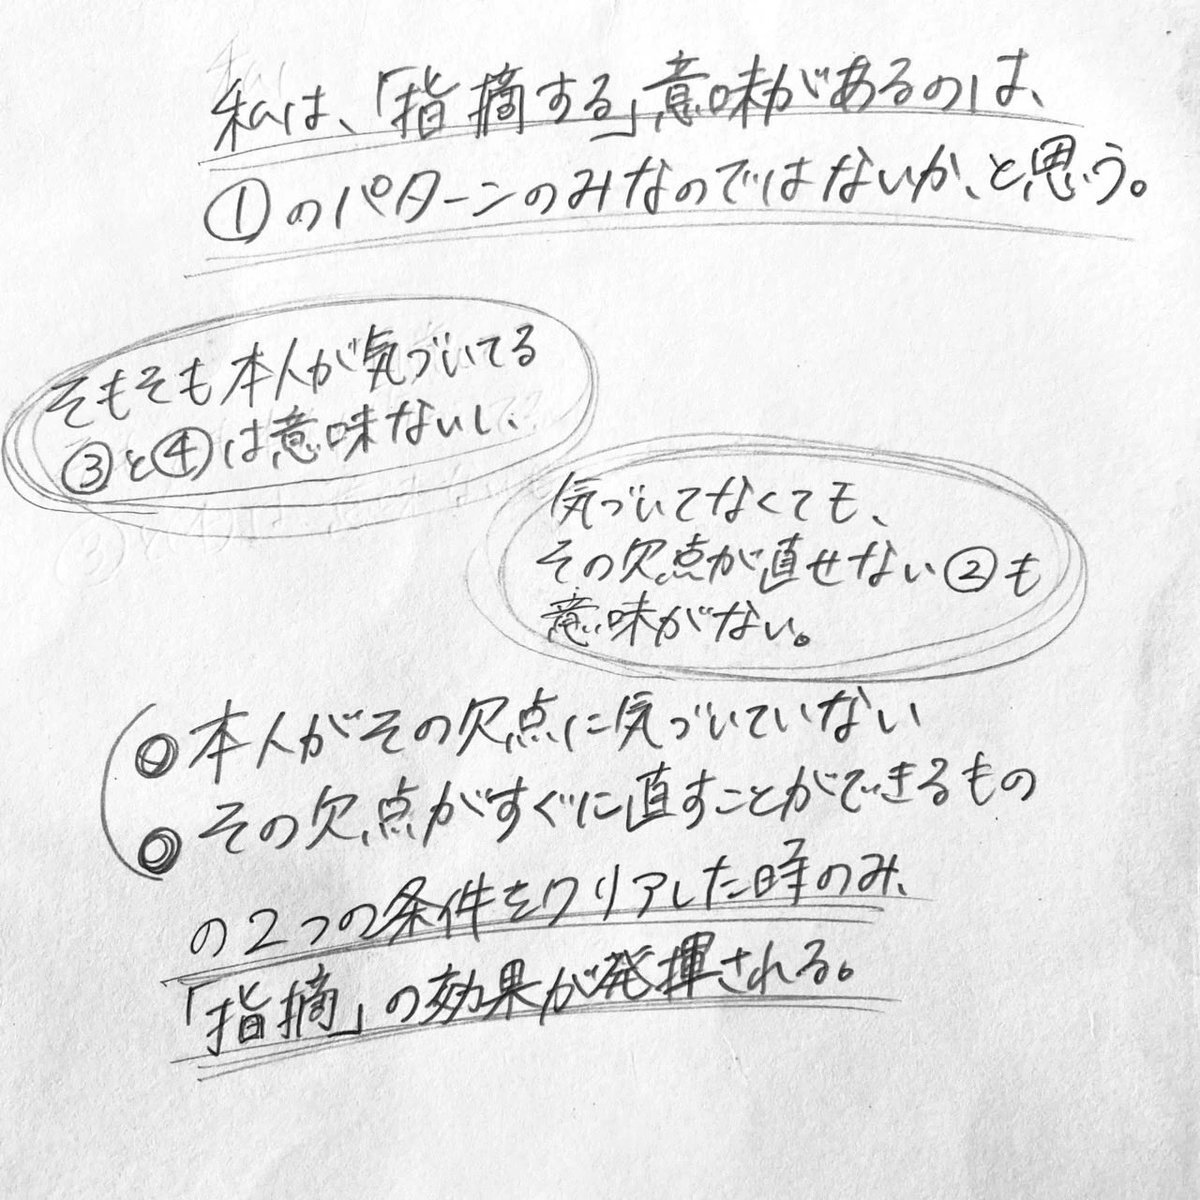 私は、「指摘する」意味があるのは、
①のパターンのみなのではないか、と思う。
そもそも本人が気づいてる
③と④は意味ないし、
気づいてなくても、
その欠点が直せない②も
意味がない。
本人がその欠点に気づいていない
その欠点がすぐに直すことができるもの
の2つの条件をクリアした時のみ、
「指摘」の効果が発揮される。